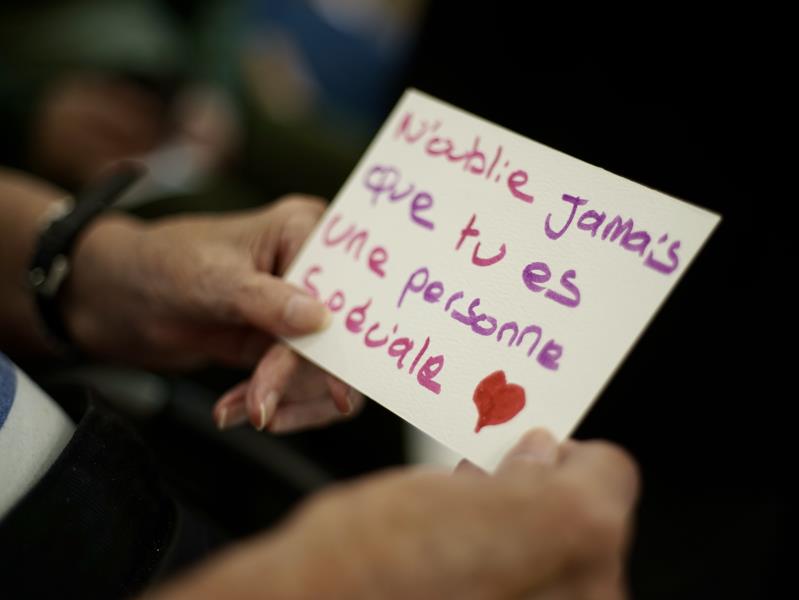 N'oublie Jamais
que tu es
une personne
spéciale